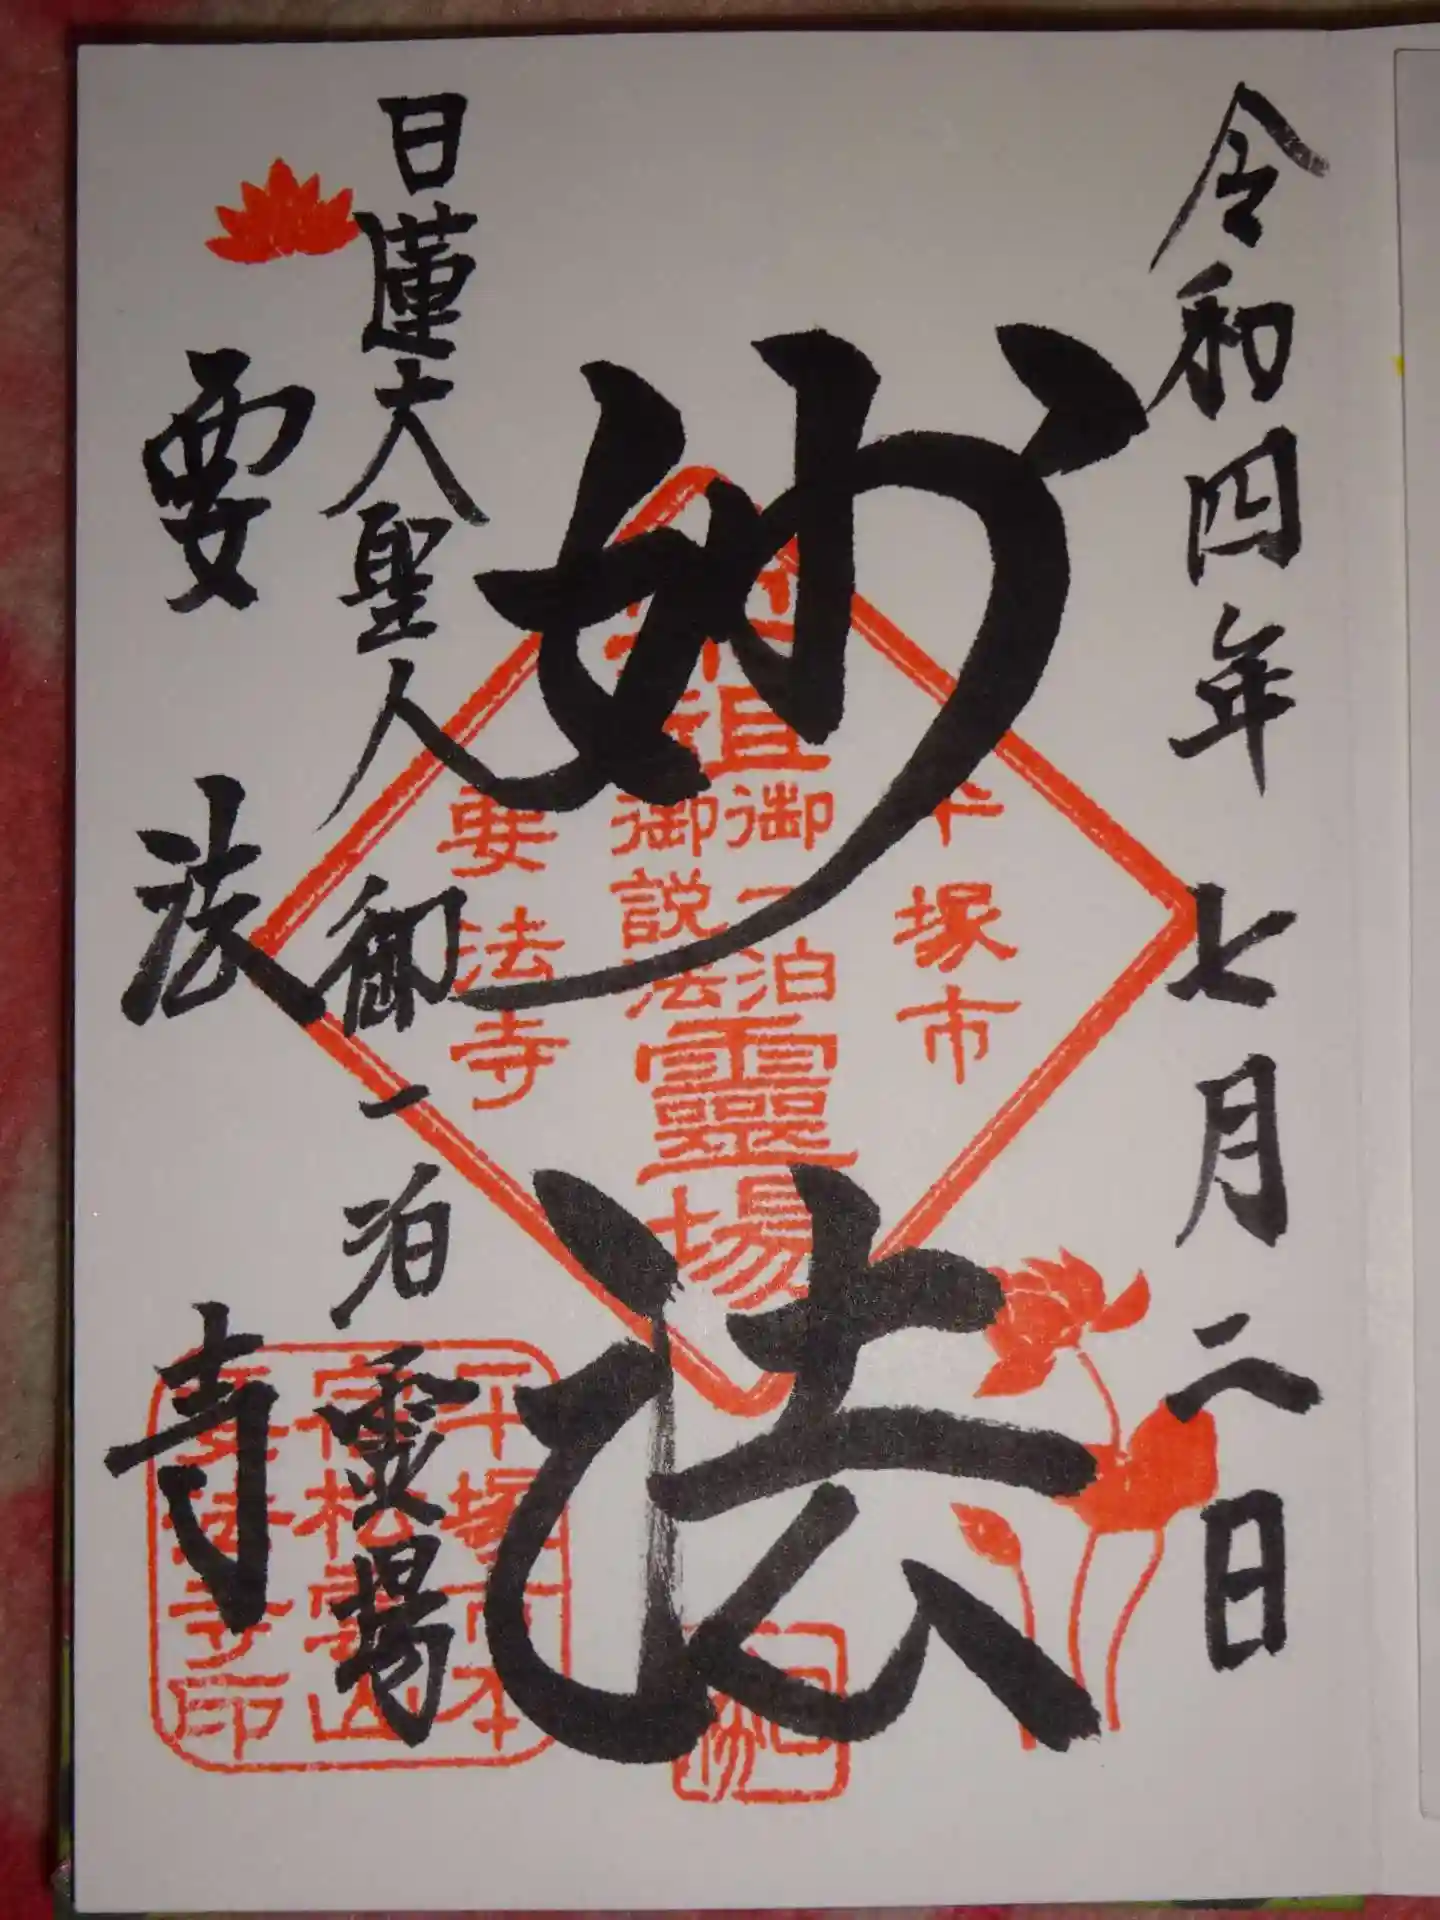 令和四年七月二日
妙法
日蓮大聖人御一泊霊場
要法寺
平塚市
祖
御一泊
御説法
靈場
要法寺
平塚
松雲山
要法寺印